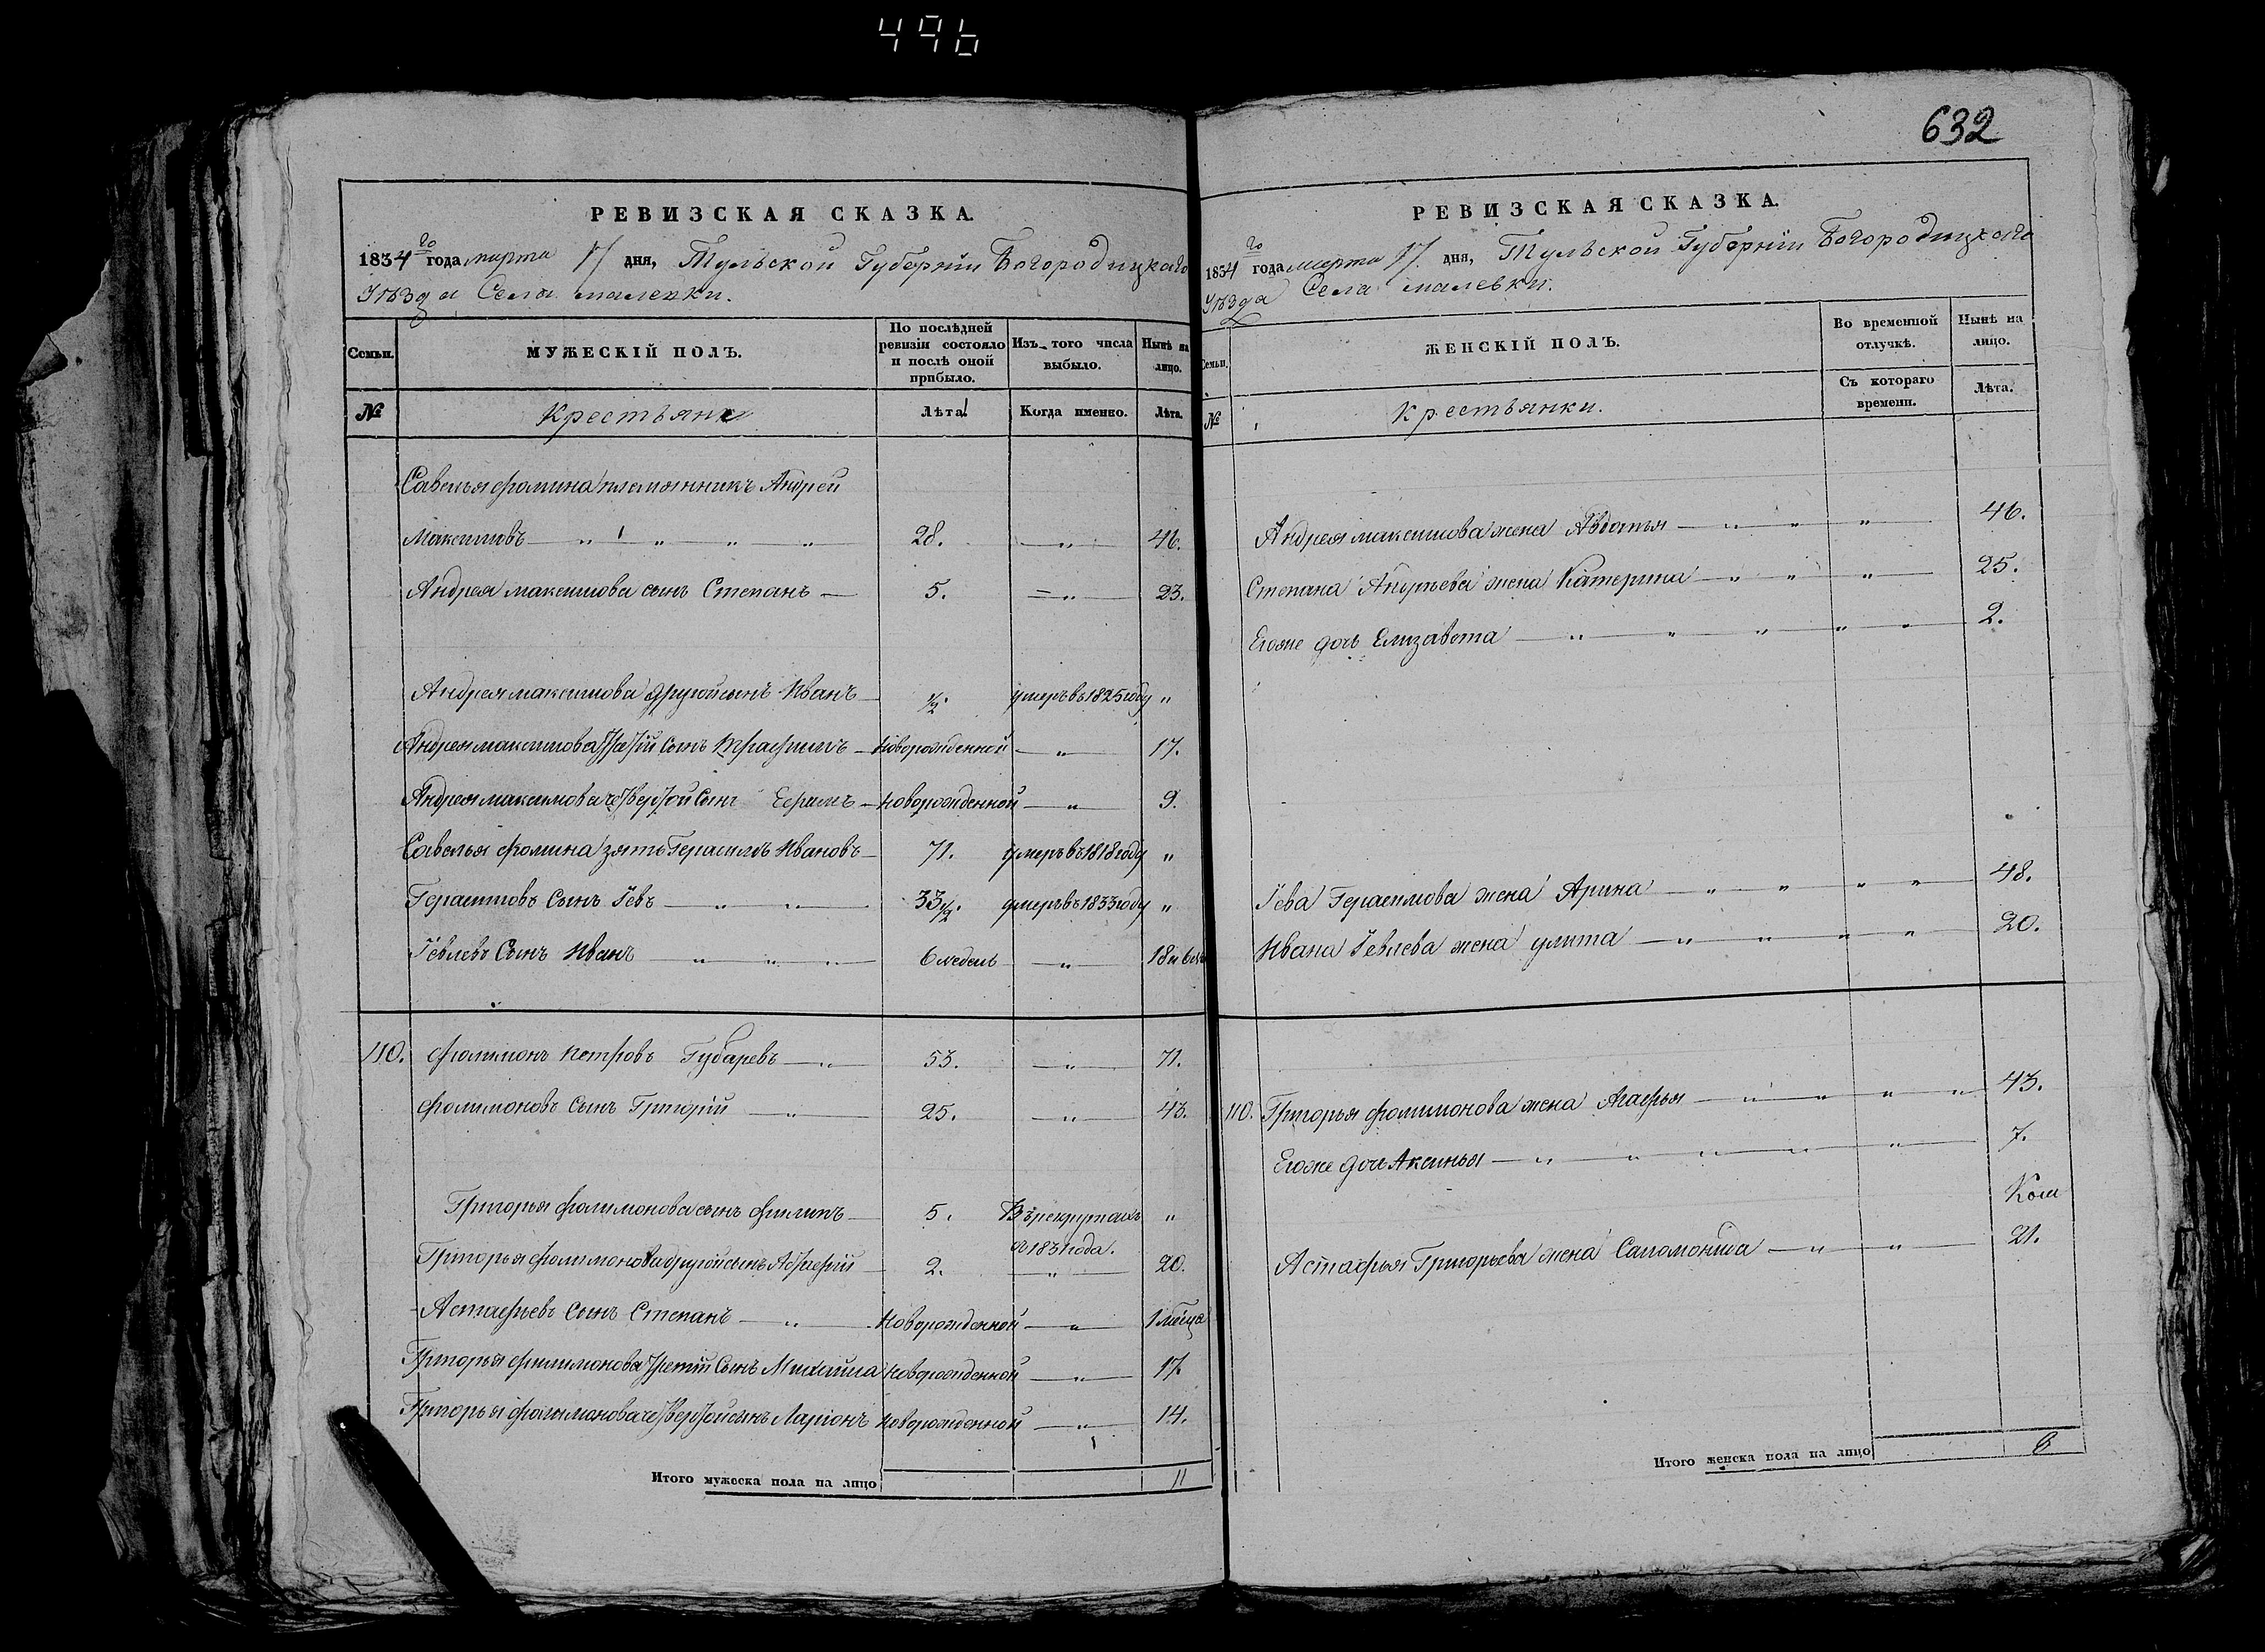 496
632
РЕВИЗСКАЯ СКАЗКА.
1834го года марта 17 дня, Тульской Губерніи Богородицкаго
Уѣзда Села малевки.
Семьи.
МУЖЕСКІЙ ПОЛЪ.
По послѣдней ревизіи состояло и послѣ оной прибыло.
Изъ того числа выбыло.
Нынѣ на лицо.
№
Крестьяне
Лѣта.
Когда именно.
Лѣта.
Савелья фомина племянникъ Андрей
Максимовъ — „ „ „ „ 28. — „ — 46.
Андрея максимова сынъ Степанъ — 5. — „ — 23.
Андрея максимова другой сынъ Иванъ — 1/2. умеръ въ 1825 году „
Андрея максимова третій сынъ Трафимъ — Новорожденной — „ — 17.
Андрея максимова четвертой Сынъ Ефимъ — новорожденной — „ — 9.
Савелья фомина зять Герасимъ Ивановъ — 71. умеръ въ 1818 году „
Герасимовъ Сынъ Іевъ — „ „ — 33 1/2. умеръ въ 1833 году „
Іевлевъ Сынъ Иванъ — „ „ „ — 6 недель — „ — 18 и 6 не
110. филимонъ петровъ Губаревъ — „ — 53. — „ — 71.
филимоновъ Сынъ Григорій — „ — 25. — „ — 43.
Григорья филимонова сынъ филипъ — 5. Въ рекрутахъ „
с 1831 года.
Григорья филимонова другой сынъ Астафій — 2. — „ — 20.
Астафьевъ Сынъ Степанъ — „ — Новорожденной — „ — 1 меца
Григорья филимонова третій Сынъ Михайла новорожденной — „ — 17.
Григорья филимонова четвертой сынъ Ларіонъ новорожденной — „ — 14.
Итого мужеска пола на лицо 11
РЕВИЗСКАЯ СКАЗКА.
1834го года марта 17. дня, Тульской Губерніи Богородицкаго
Уѣзда Села малевки.
Семьи.
ЖЕНСКІЙ ПОЛЪ.
Во временной отлучкѣ.
Нынѣ на лицо.
№
Крестьянки.
Съ котораго времени.
Лѣта.
Андрея максимова жена Авдотья — „ „ „ — 46.
Степана Андреева жена Катерина — „ „ „ — 25.
Егоже дочь Елизавета — „ „ „ „ „ — 2.
Іева Герасимова жена Арина — „ „ „ „ — 48.
Ивана Іевлева жена улита — „ „ „ „ — 20.
110. Григорья филимонова жена Агафья — „ „ „ „ 43.
Егоже дочь Аксинья — „ „ „ „ „ — 7.
Астафья Григорьева жена Саломонида — „ „ — 21.
Итого женска пола на лицо 8